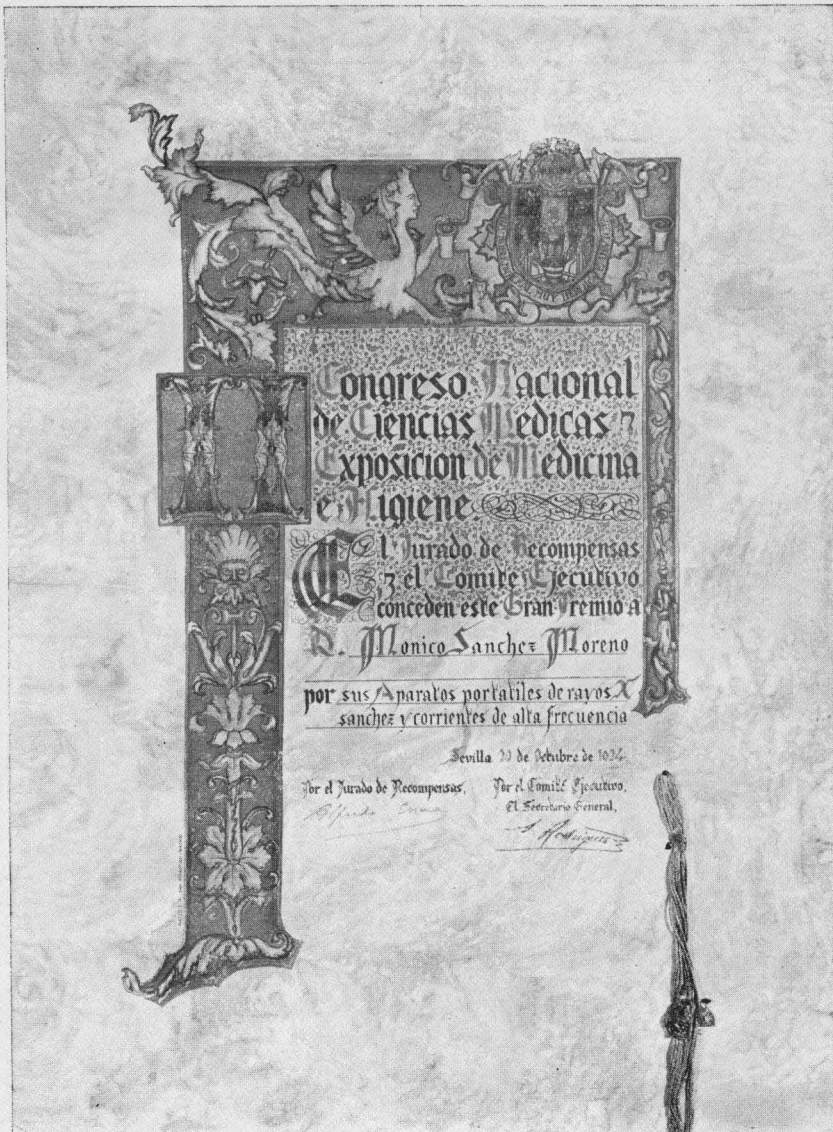 MUY
II
Congreso Nacional
de Ciencias Medicas y
Exposicion de Medicina
e Higiene.
El Jurado de Recompensas
y el Comite Ejecutivo
conceden este Gran Premio a
D. Monico Sanchez Moreno
por sus Aparatos portatiles de rayos X
sanchez y corrientes de alta frecuencia
Sevilla de Octubre de 1924
Por el Jurado de Recompensas,
Por el Comité Ejecutivo,
El Secretario General,
Alfredo